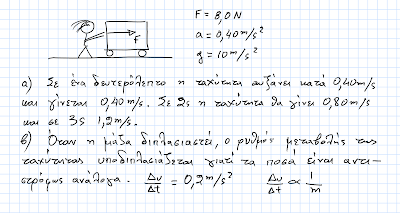 F = 8,0 N
a = 0,40 m/s²
g = 10 m/s²
F
α) Σε ένα δευτερόλεπτο η ταχύτητα αυξάνει κατά 0,40 m/s
και γίνεται 0,40 m/s. Σε 2s η ταχύτητα θα γίνει 0,80 m/s
και σε 3s 1,2 m/s.
β) Όταν η μάζα διπλασιαστεί, ο ρυθμός μεταβολής της
ταχύτητας υποδιπλασιάζεται γιατί τα ποσά είναι αντι-
στρόφως ανάλογα. Δυ/Δt = 0,2 m/s² Δυ/Δt ∝ 1/m